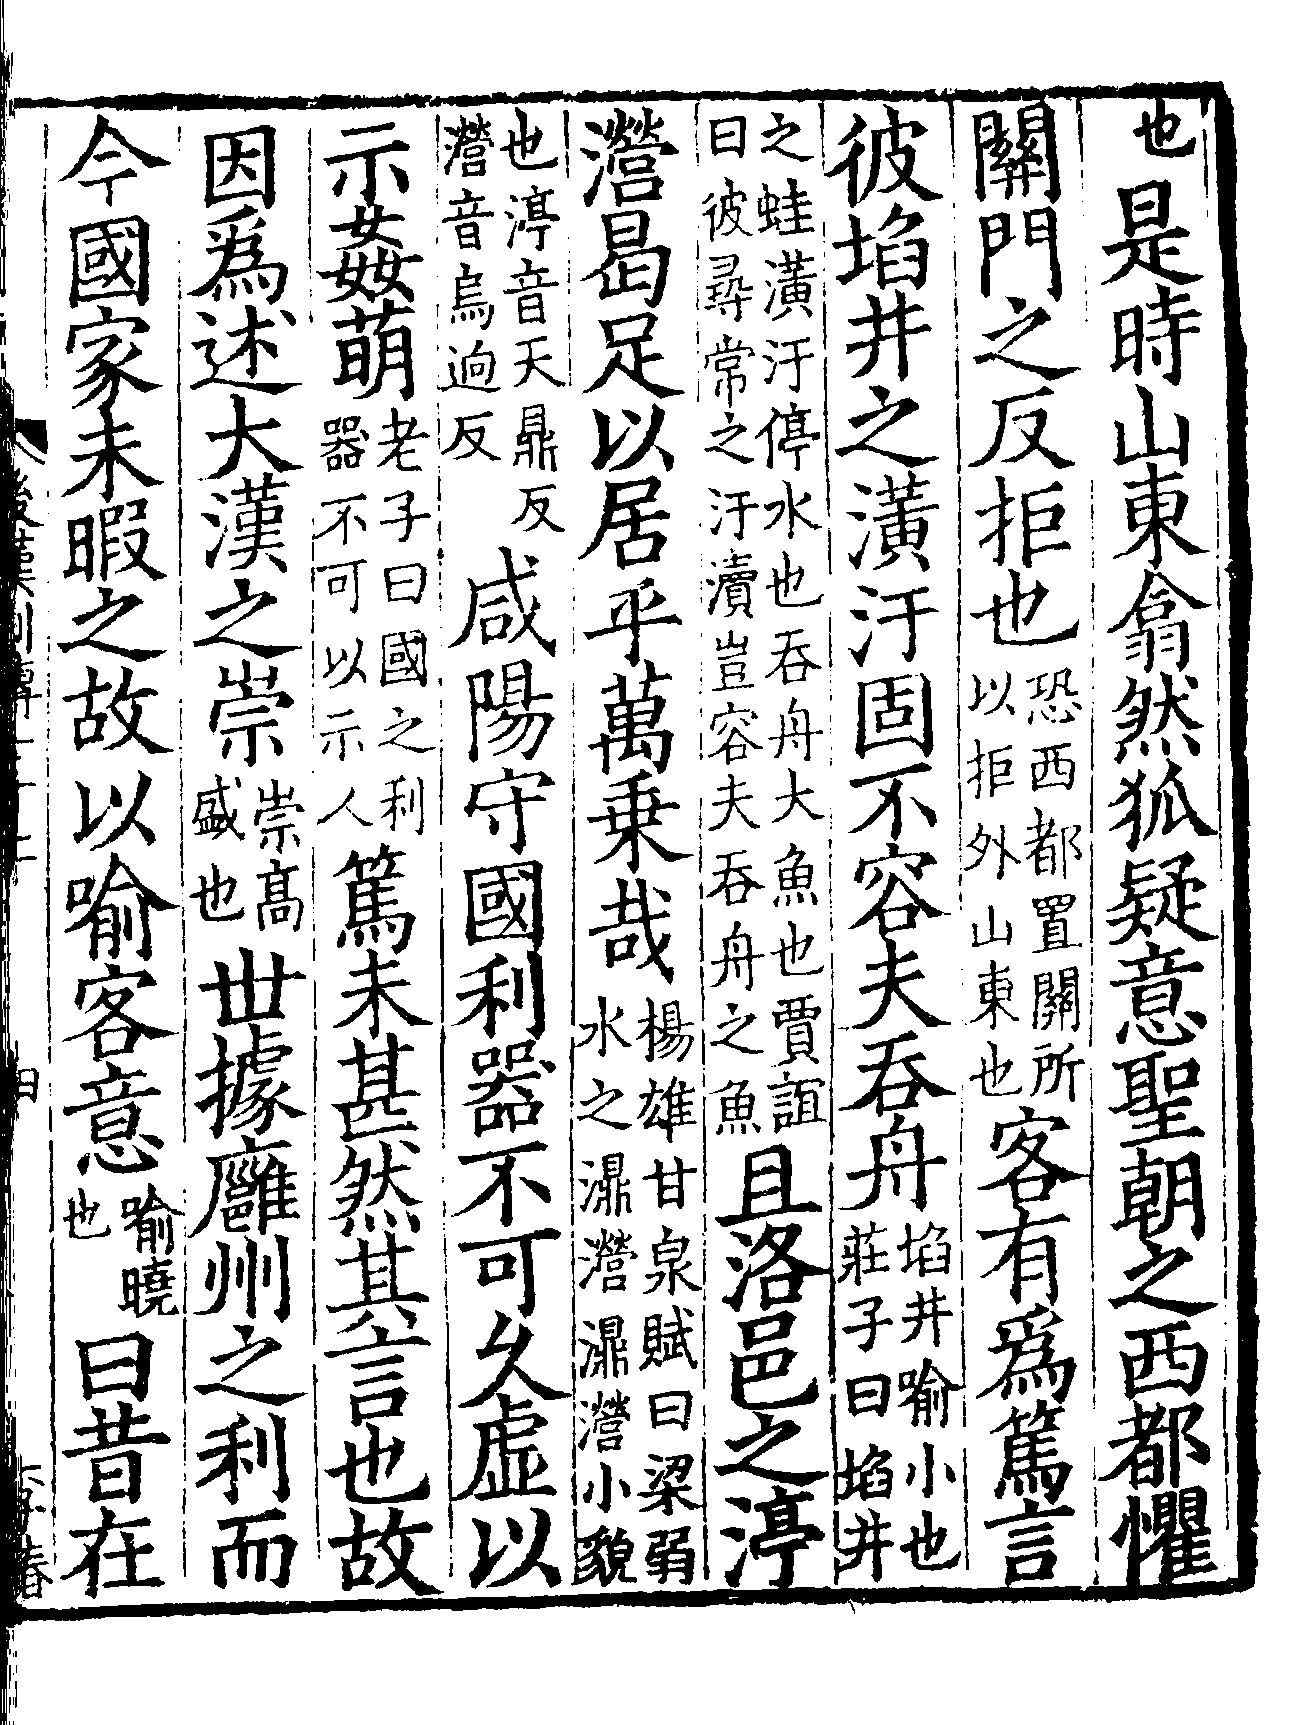 也是時山東翕然狐疑意聖朝之西都懼
關門之反拒也恐西都置關所以拒外山東也客有爲篤言
彼埳井之潢汙固不容夫吞舟埳井喻小也莊子曰埳井
之蛙潢汙停水也吞舟大魚也賈誼曰彼尋常之汙瀆豈容夫吞舟之魚且洛邑之渟
瀯曷足以居乎萬乗哉楊雄甘泉賦曰梁弱水之濎瀯濎瀯小貌
也渟音天鼎反瀯音烏迥反咸陽守國利器不可乆虚以
示姦萌老子曰國之利器不可以示人篤未甚然其言也故
因爲述大漢之崇崇高盛也丗據廱州之利而
今國家未暇之故以喻客意喻曉也曰昔在